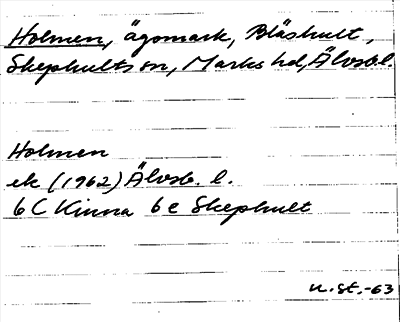 Holmen, ägomark, Bläshult,
Skephults sn, Marks hd, Älvsb. l.
Holmen
ek (1962) Älvsb. l.
6 C Kinna 6 e Skephult
n. st. -63